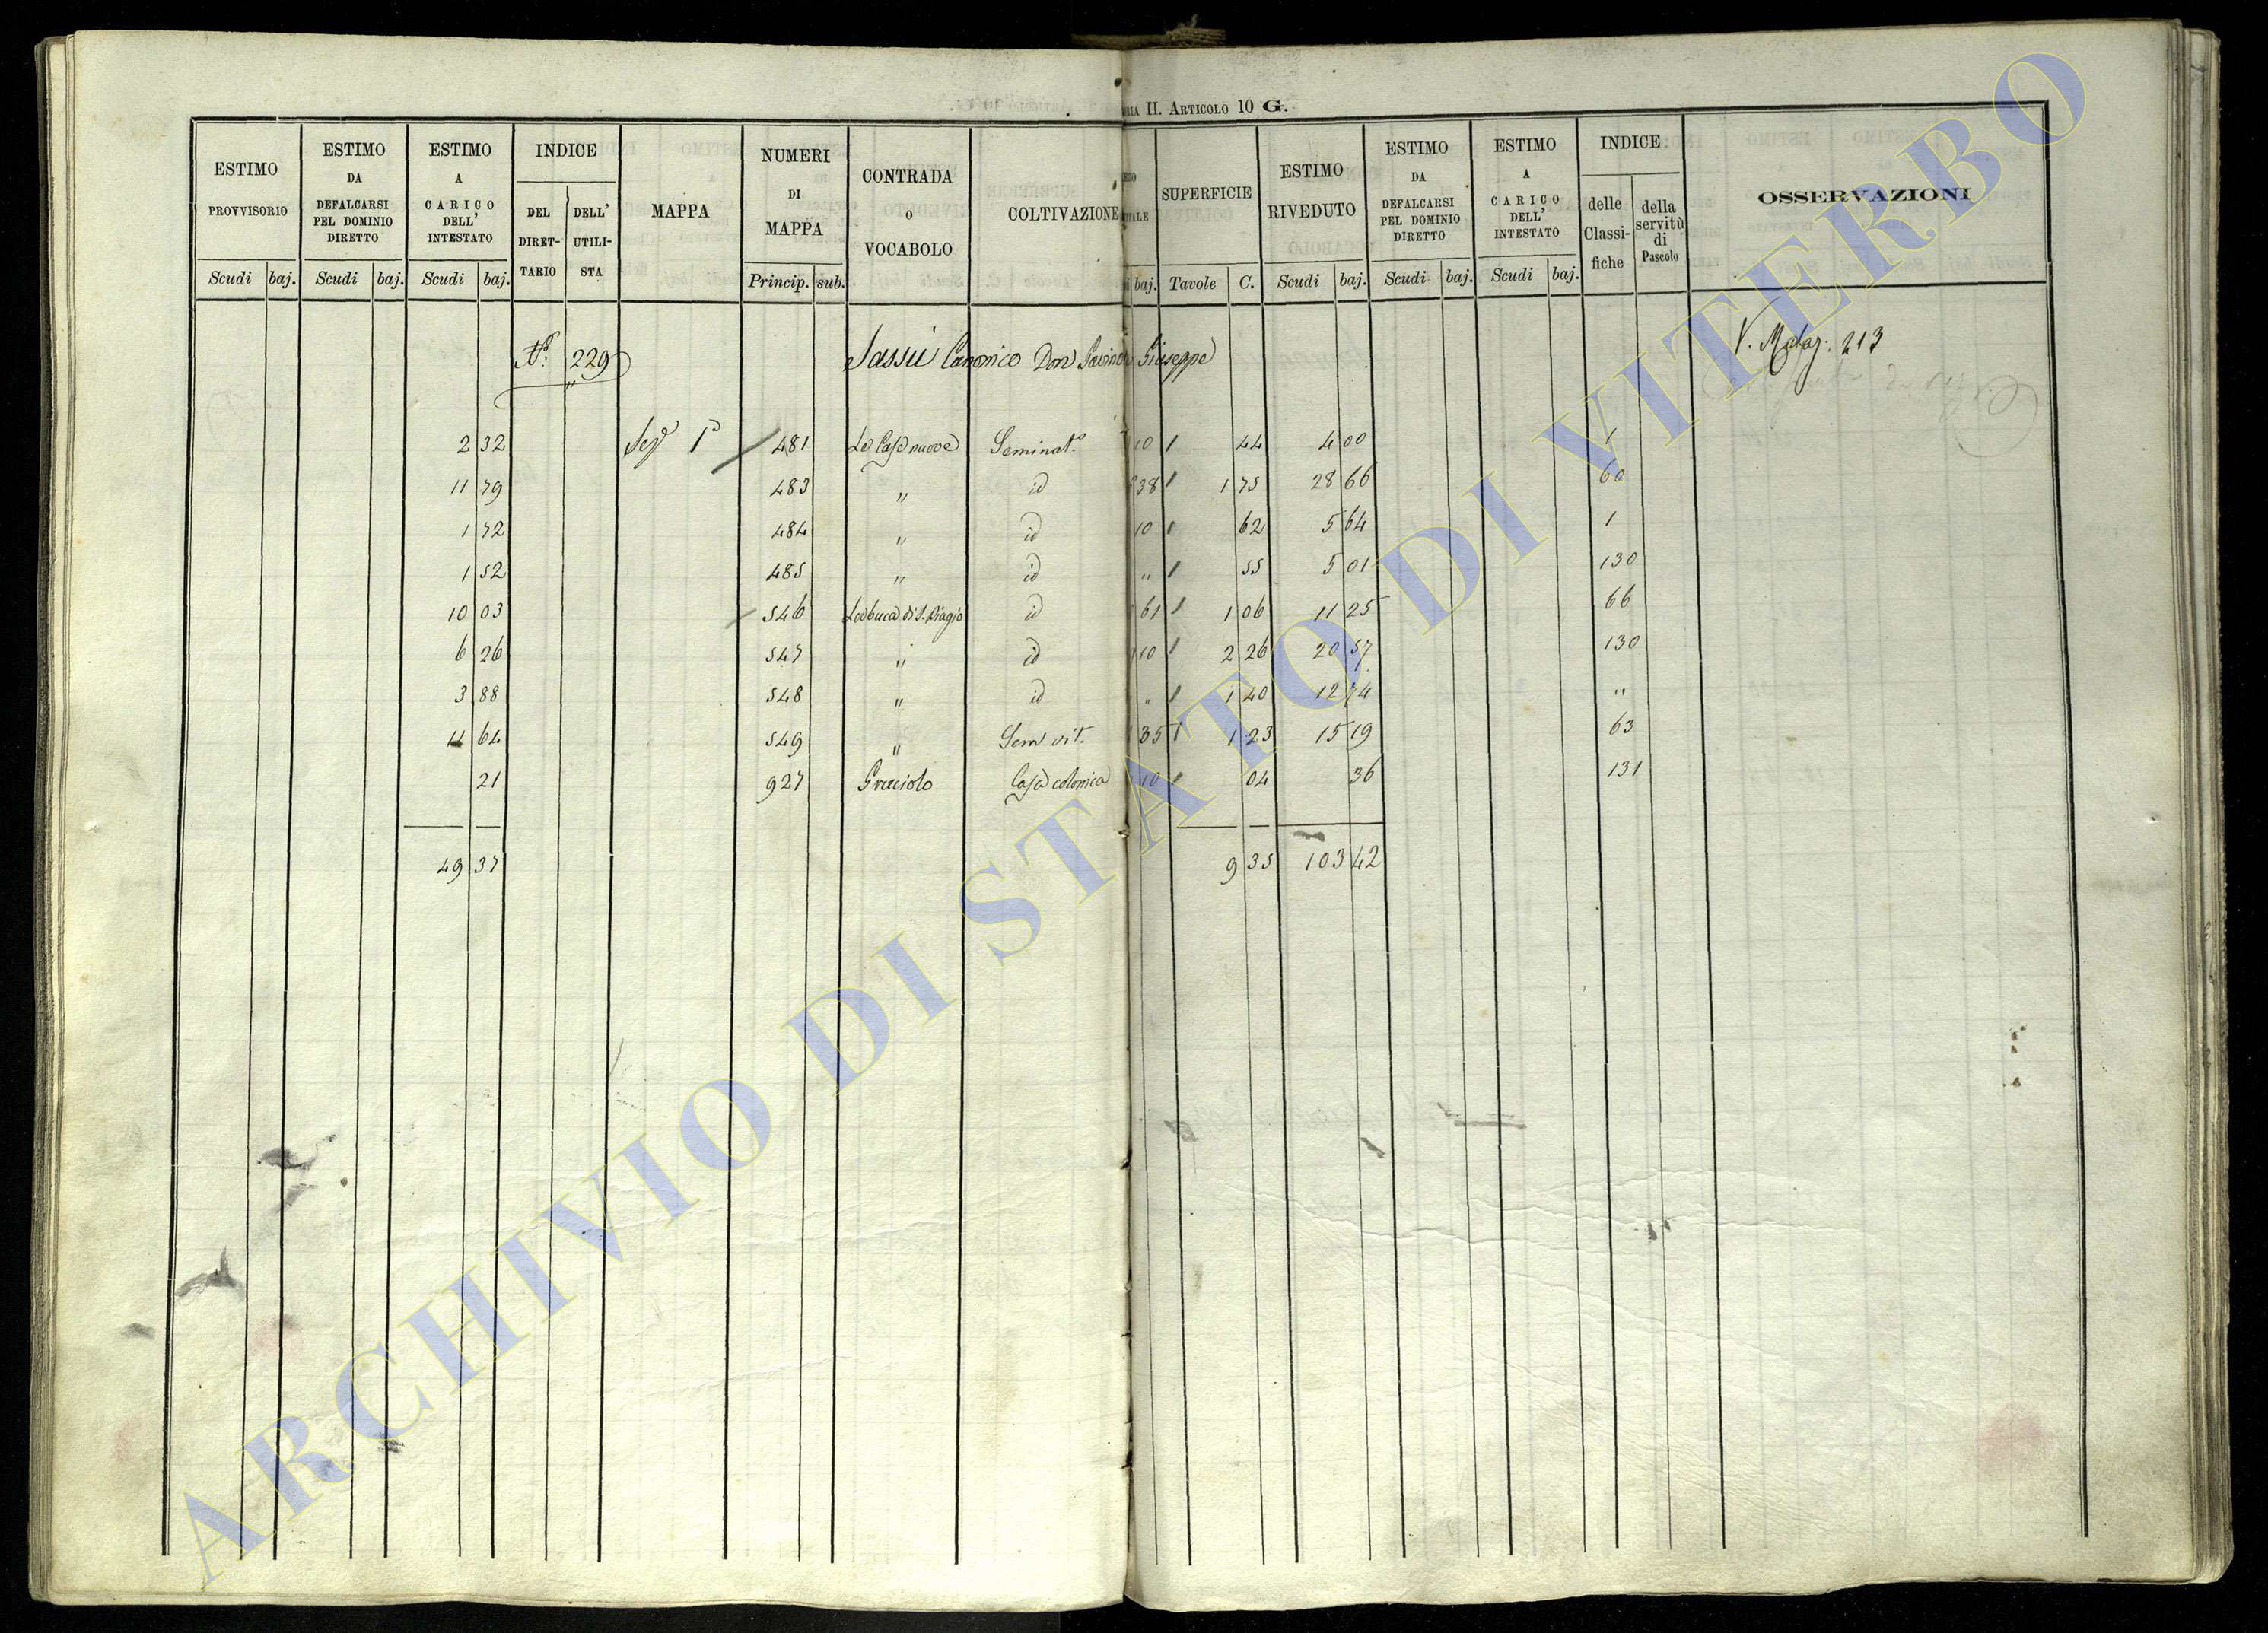 RIA II. ARTICOLO 10 G.
ESTIMO PROVVISORIO | ESTIMO DA DEFALCARSI PEL DOMINIO DIRETTO | ESTIMO A CARICO DELL' INTESTATO | INDICE | MAPPA | NUMERI DI MAPPA | CONTRADA O VOCABOLO | COLTIVAZIONE | SUPERFICIE | ESTIMO RIVEDUTO | ESTIMO DA DEFALCARSI PEL DOMINIO DIRETTO | ESTIMO A CARICO DELL' INTESTATO | INDICE | OSSERVAZIONI
DEL DIRETTARIO | DELL' UTILISTA | delle Classifiche | della servitù di Pascolo
Scudi | baj. | Scudi | baj. | Scudi | baj. | Princip. | sub. | baj. | Tavole | C. | Scudi | baj. | Scudi | baj. | Scudi | baj.
N.º 229 Sassu Canonico Don Gavino Giuseppe V. Matag: 213
2 32 Sez.e 1a 481 Le Case nuove Seminat.o 10 1 44 4 00 1
11 79 483 " id 38 1 1 75 28 66 60
1 72 484 " id 10 1 62 5 64 1
1 52 485 " id " 1 55 5 01 130
10 03 546 La buca di S. Biagio id 61 1 1 06 11 25 66
6 26 547 " id 10 1 2 26 20 57 130
3 88 548 " id " 1 1 40 12 74 "
11 64 549 " Sem vit. 35 1 1 23 15 19 63
21 927 Gracciolo Casa colonica 10 1 04 36 131
49 37 9 35 103 42
ARCHIVIO DI STATO DI VITERBO